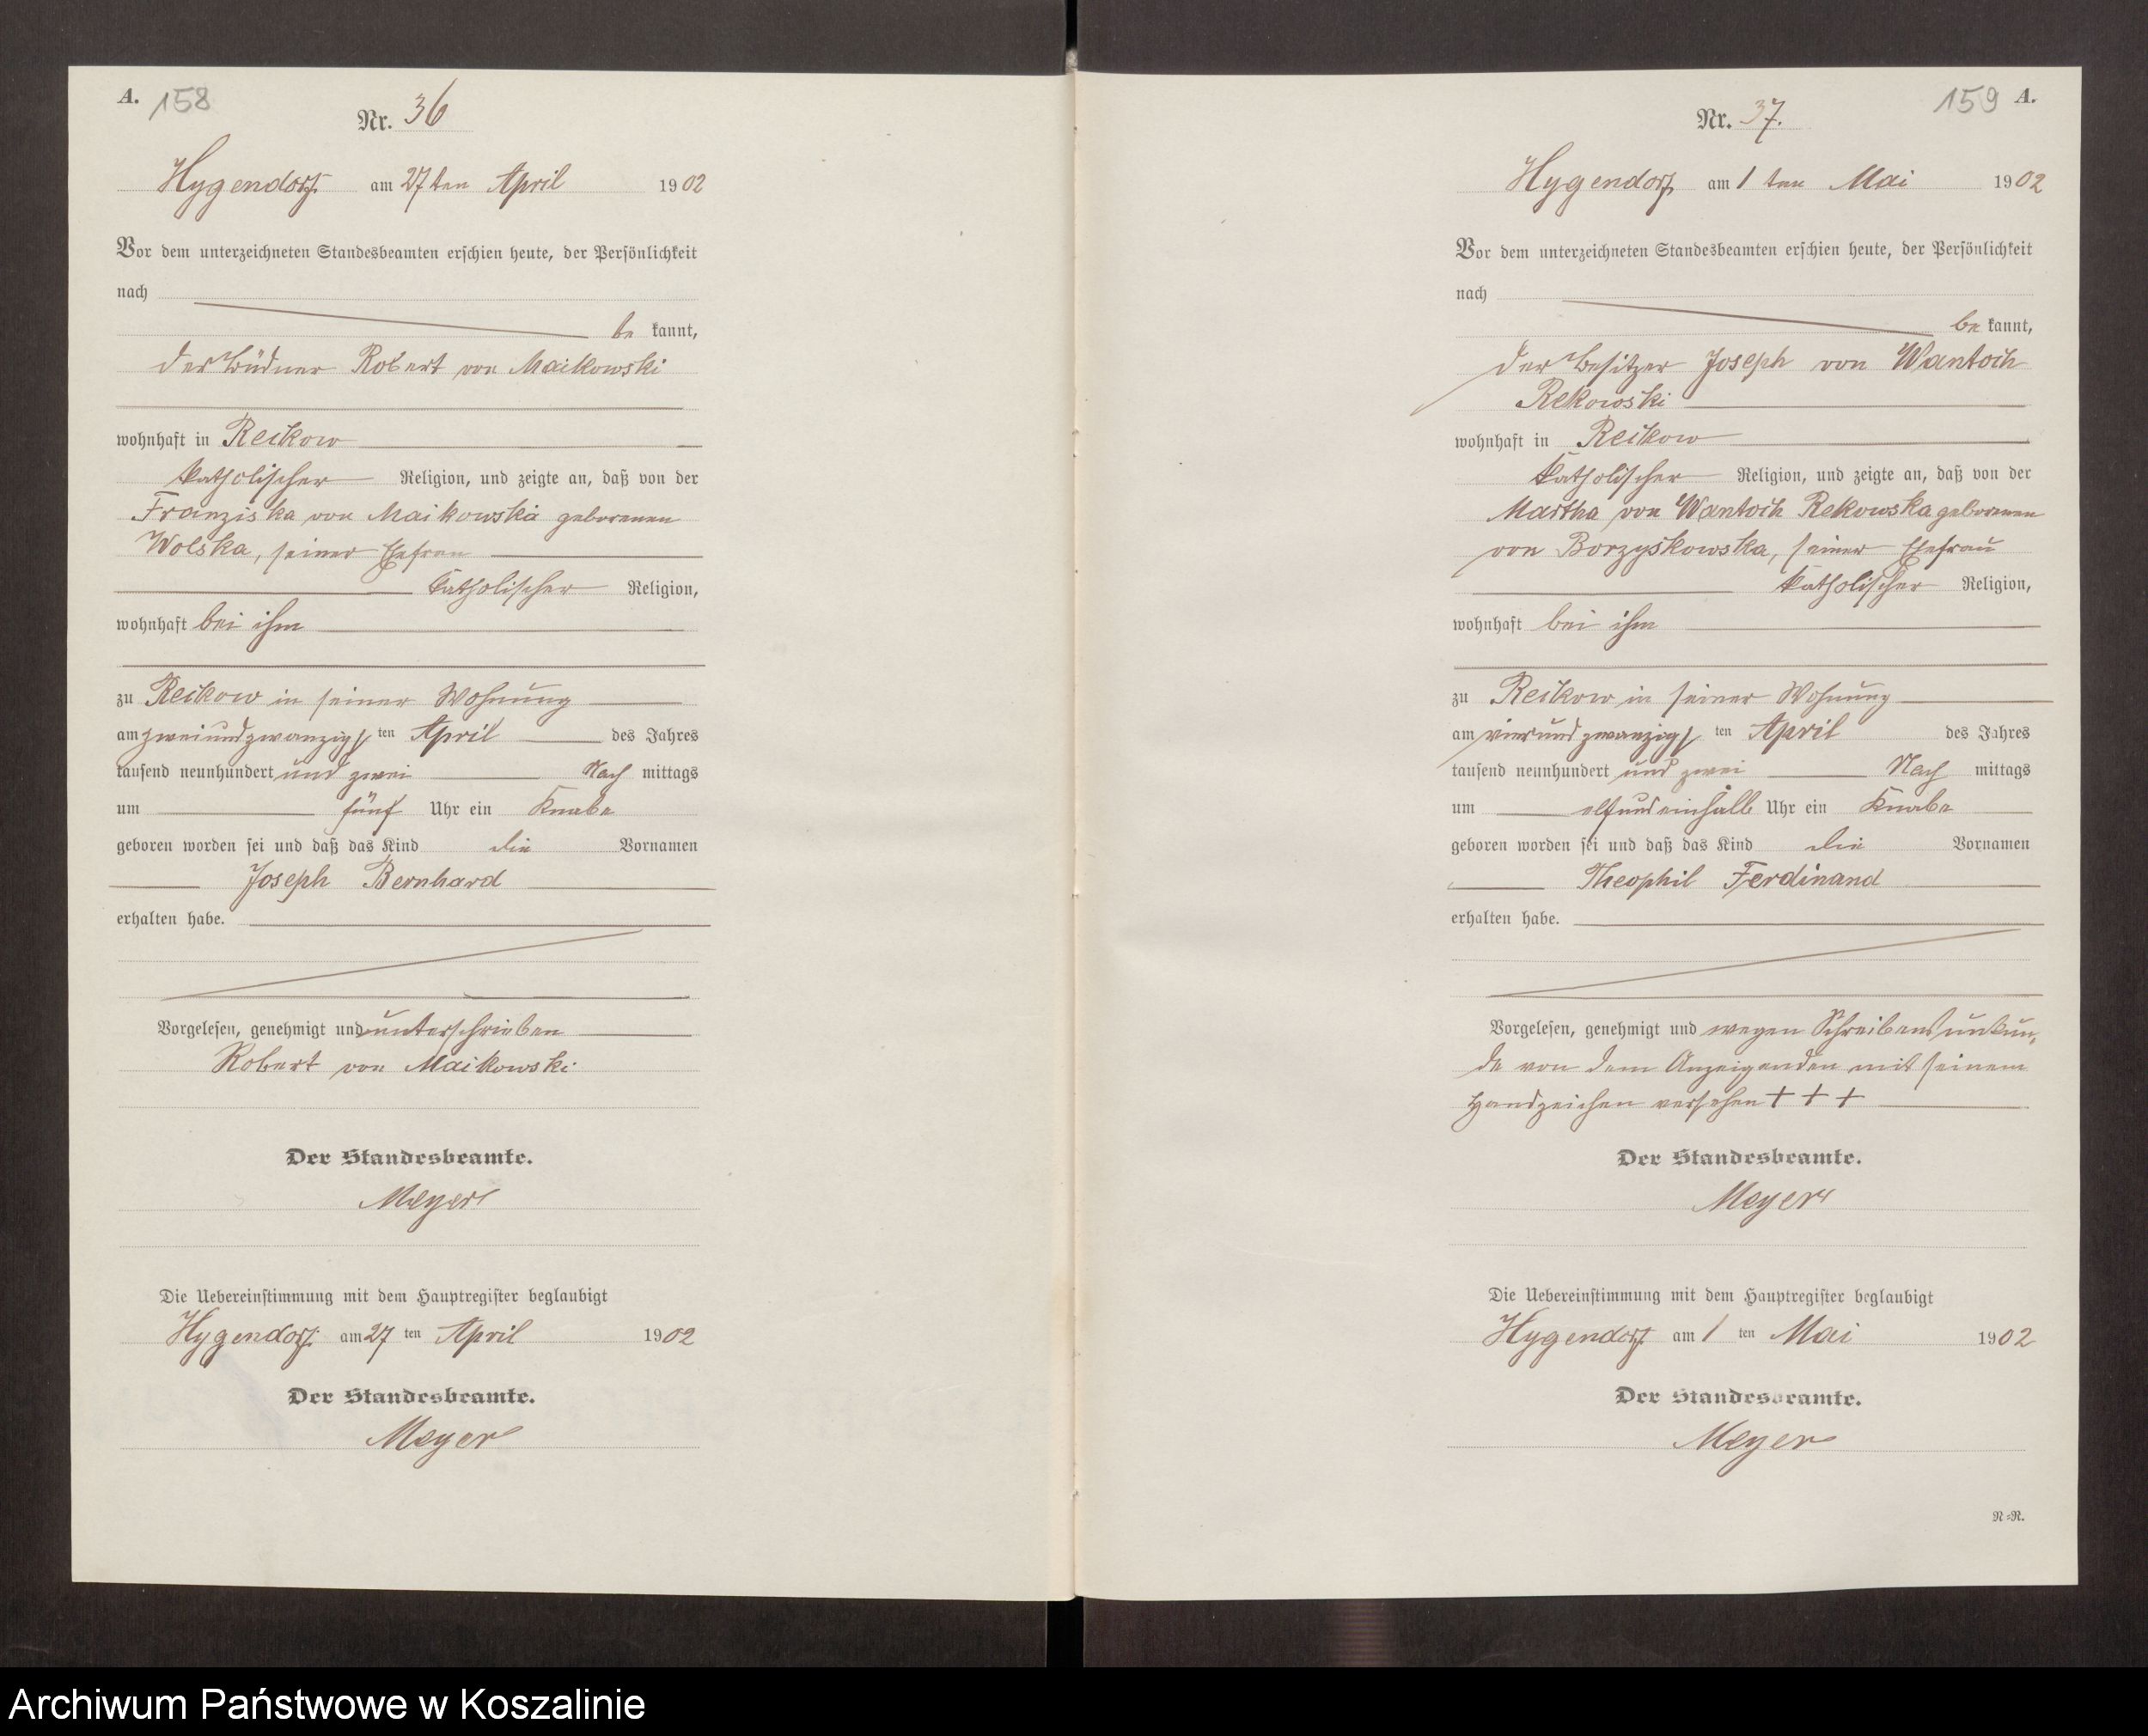 A. 158
Nr. 36
Hygendorf. am 27ten April 1902
Vor dem unterzeichneten Standesbeamten erschien heute, der Persönlichkeit
nach
be kannt,
der Büdner Robert von Maikowski
wohnhaft in Reckow
katholischer Religion, und zeigte an, daß von der
Franziska von Maikowska geborenen
Wolska, seiner Ehefrau
katholischer Religion,
wohnhaft bei ihm
zu Reckow in seiner Wohnung
am zweiundzwanzigsten April des Jahres
tausend neunhundert und zwei Nach mittags
um fünf Uhr ein Knabe
geboren worden sei und daß das Kind die Vornamen
Joseph Bernhard
erhalten habe.
Vorgelesen, genehmigt und unterschrieben
Robert von Maikowski
Der Standesbeamte.
Meyer
Die Uebereinstimmung mit dem Hauptregister beglaubigt
Hygendorf. am 27 ten April 1902
Der Standesbeamte.
Meyer
159 A.
Nr. 37.
Hygendorf am 1 ten Mai 1902
Vor dem unterzeichneten Standesbeamten erschien heute, der Persönlichkeit
nach
be kannt,
der Besitzer Joseph von Wantoch
Rekowski
wohnhaft in Reckow
katholischer Religion, und zeigte an, daß von der
Martha von Wantoch Rekowska geborenen
von Borzyskowska, seiner Ehefrau
katholischer Religion,
wohnhaft bei ihm
zu Reckow in seiner Wohnung
am vierundzwanzigsten April des Jahres
tausend neunhundert und zwei Nach mittags
um elfundeinhalb Uhr ein Knabe
geboren worden sei und daß das Kind die Vornamen
Theophil Ferdinand
erhalten habe.
Vorgelesen, genehmigt und wegen Schreibensunkun-
de von dem Anzeigenden mit seinem
Handzeichen versehen + + +
Der Standesbeamte.
Meyer
Die Uebereinstimmung mit dem Hauptregister beglaubigt
Hygendorf am 1 ten Mai 1902
Der Standesbeamte.
Meyer
N=R.
Archiwum Państwowe w Koszalinie